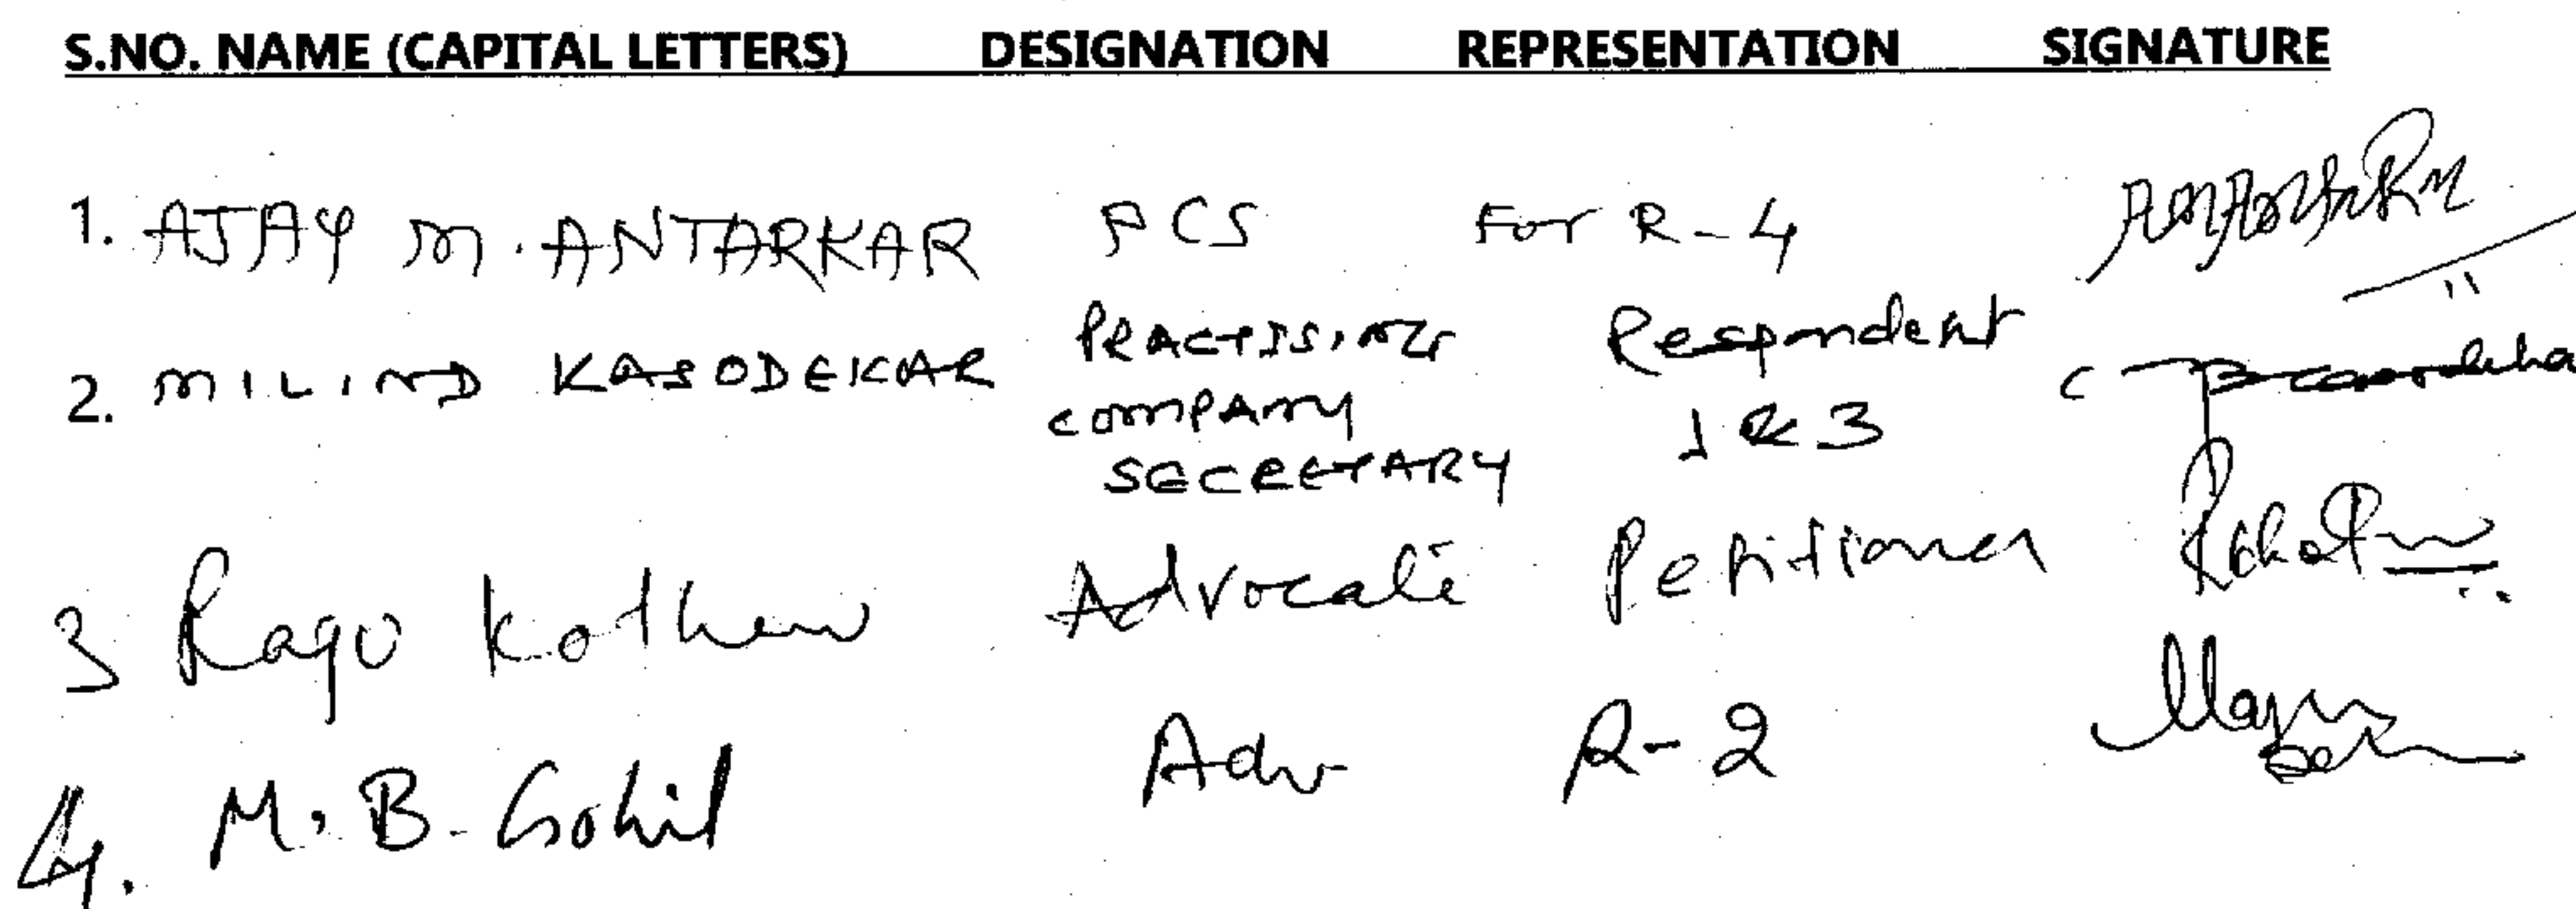 S.NO. NAME (CAPITAL LETTERS) DESIGNATION REPRESENTATION SIGNATURE
1. AJAY M. ANTARKAR PCS For R-4
2. MILIND KASODEKAR PRACTISING Respondent
COMPANY 1 & 3
SECRETARY
3 Ragv Advocate Petitioner
4. M. B. Gohil Adv R-2